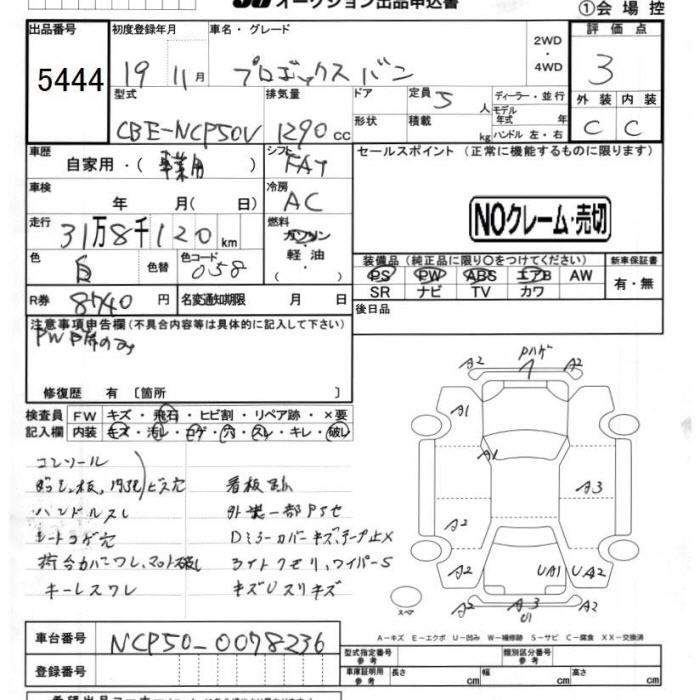 オークション出品申込書
①会場控
出品番号 初度登録年月 車名・グレード 2WD・4WD 評価点
5444 19年11月 プロボックスバン 3
型式 排気量 ドア 定員 5人 ディーラー・並行 外装 内装
CBE-NCP50V 1290cc 形状 積載 kg モデル年式 年 ハンドル 左・右 C C
車歴 自家用・(事業用) シフト FAT セールスポイント (正常に機能するものに限ります)
車検 年 月(日) 冷房 AC
NOクレーム・売切
走行 31万8千120km 燃料 ガソリン・軽油・( )
色 白 色替 色コード 058
装備品 (純正品に限り○をつけてください) 新車保証書
PS PW ABS エアB AW 有・無
SR ナビ TV カワ
R券 8740円 名変通知期限 月 日
後日品
注意事項申告欄(不具合内容等は具体的に記入して下さい)
PW
修復歴 有 〔箇所 〕
検査員 FW キズ・飛石・ヒビ割・リペア跡・×要
記入欄 内装 キズ・汚レ・コゲ・穴・スレ・キレ・破レ
コンソール
ビス穴 看板
ハンドルスレ 外装一部
シートコゲ穴 Dミラーカバーキズ、テープ止メ
荷台カバーワレ、マット破レ ライトクモリ、ワイパーS
キーレスワレ キズUスリキズ
A2 Pハゲ A2
A1
A1
A3
A2
A2 UA1 UA2
A2 A3 A2
U1
スペア
A－キズ E－エクボ U－凹み W－補修跡 S－サビ C－腐食 XX－交換済
車台番号 NCP50-0078236
型式指定番号 参考 類別区分番号 参考
登録番号
車体証明同 参考 長さ cm 幅 cm 高さ cm